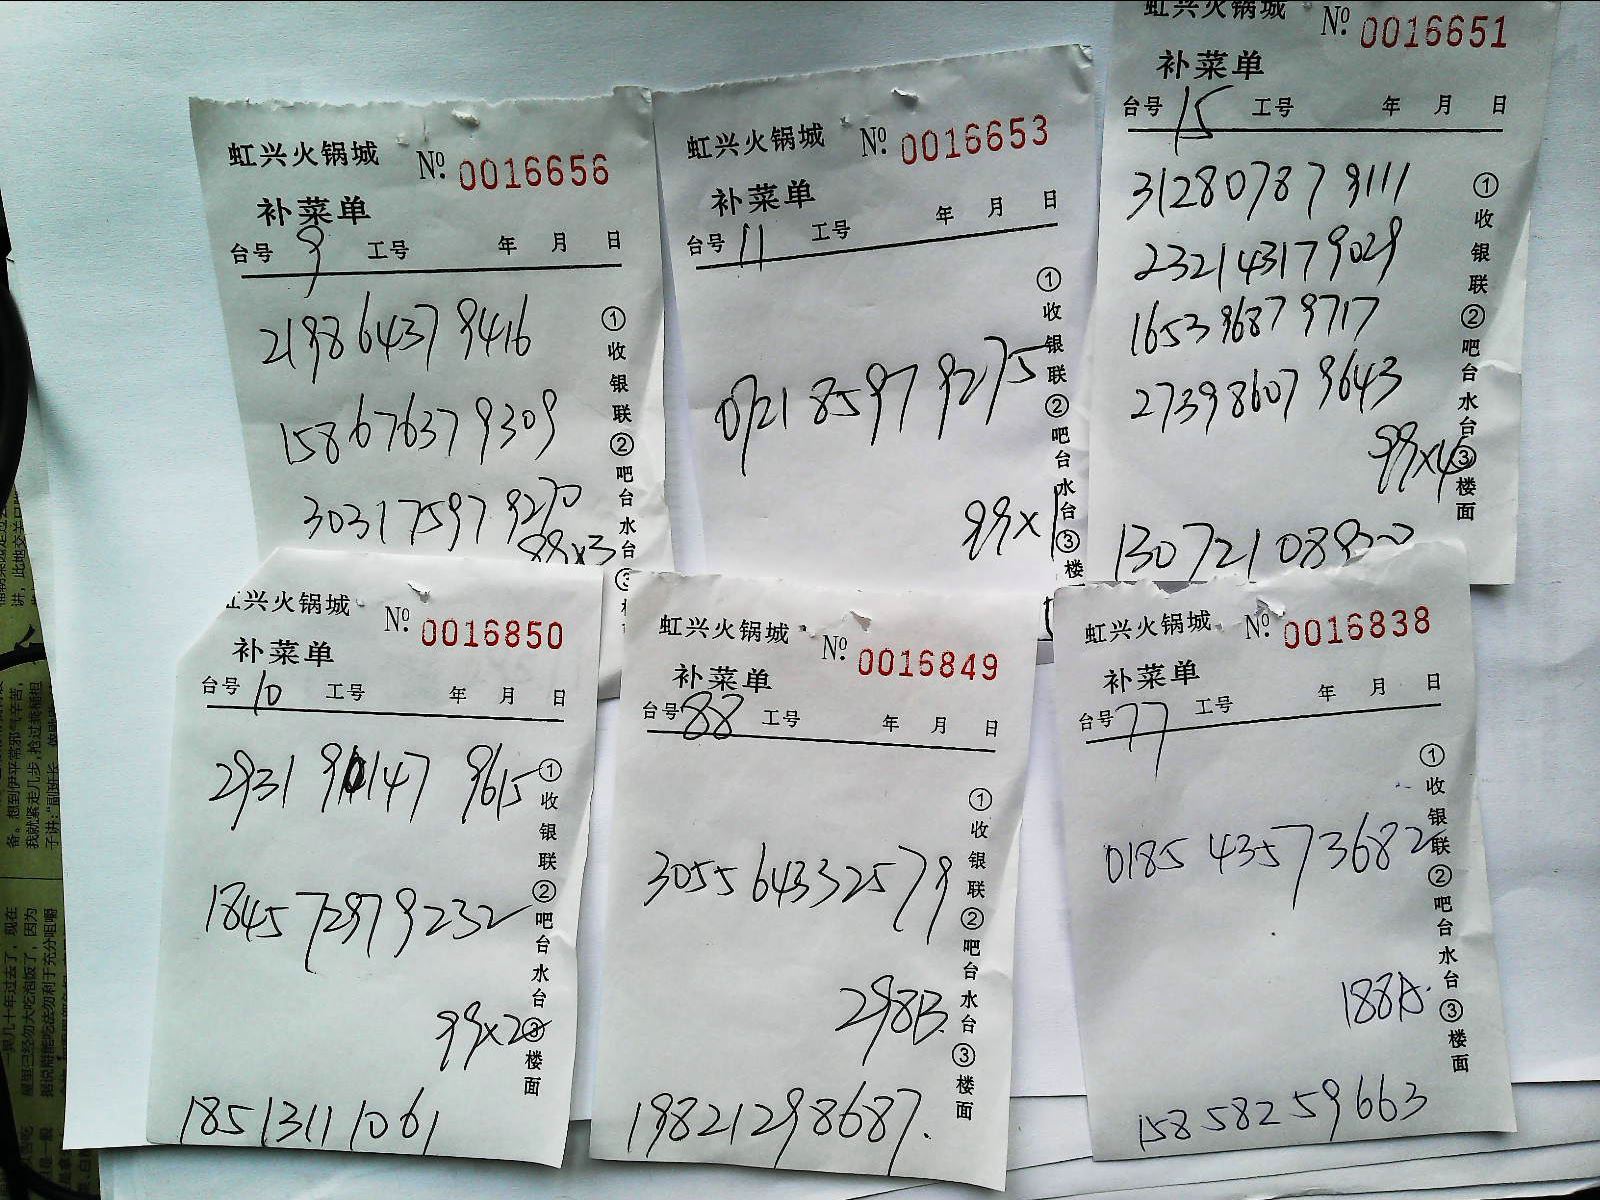 虹兴火锅城 №. 0016656
补菜单
台号 9 工号 年 月 日
219864379416
158676379309
303175979270
99x3
①收银联②吧台水台③
虹兴火锅城 №. 0016653
补菜单
台号 11 工号 年 月 日
092185979275
99x1
①收银联②吧台水台③楼
虹兴火锅城 №. 0016651
补菜单
台号 15 工号 年 月 日
312807879111
232143179029
165396879717
273986079643
99x4
13072108920
①收银联②吧台水台③楼面
虹兴火锅城 №. 0016850
补菜单
台号 10 工号 年 月 日
2931 90147 9615
184572979232
99x2
18513111061
①收银联②吧台水台③楼面
虹兴火锅城 №. 0016849
补菜单
台号 88 工号 年 月 日
305564332579
298B.
19821298687.
①收银联②吧台水台③楼面
虹兴火锅城 №. 0016838
补菜单
台号 77 工号 年 月 日
018543573682
188A.
15858259663
①收银联②吧台水台③楼面